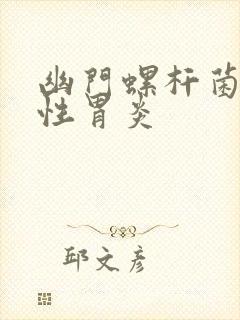 幽門螺杆菌
性胃炎
邱文彦